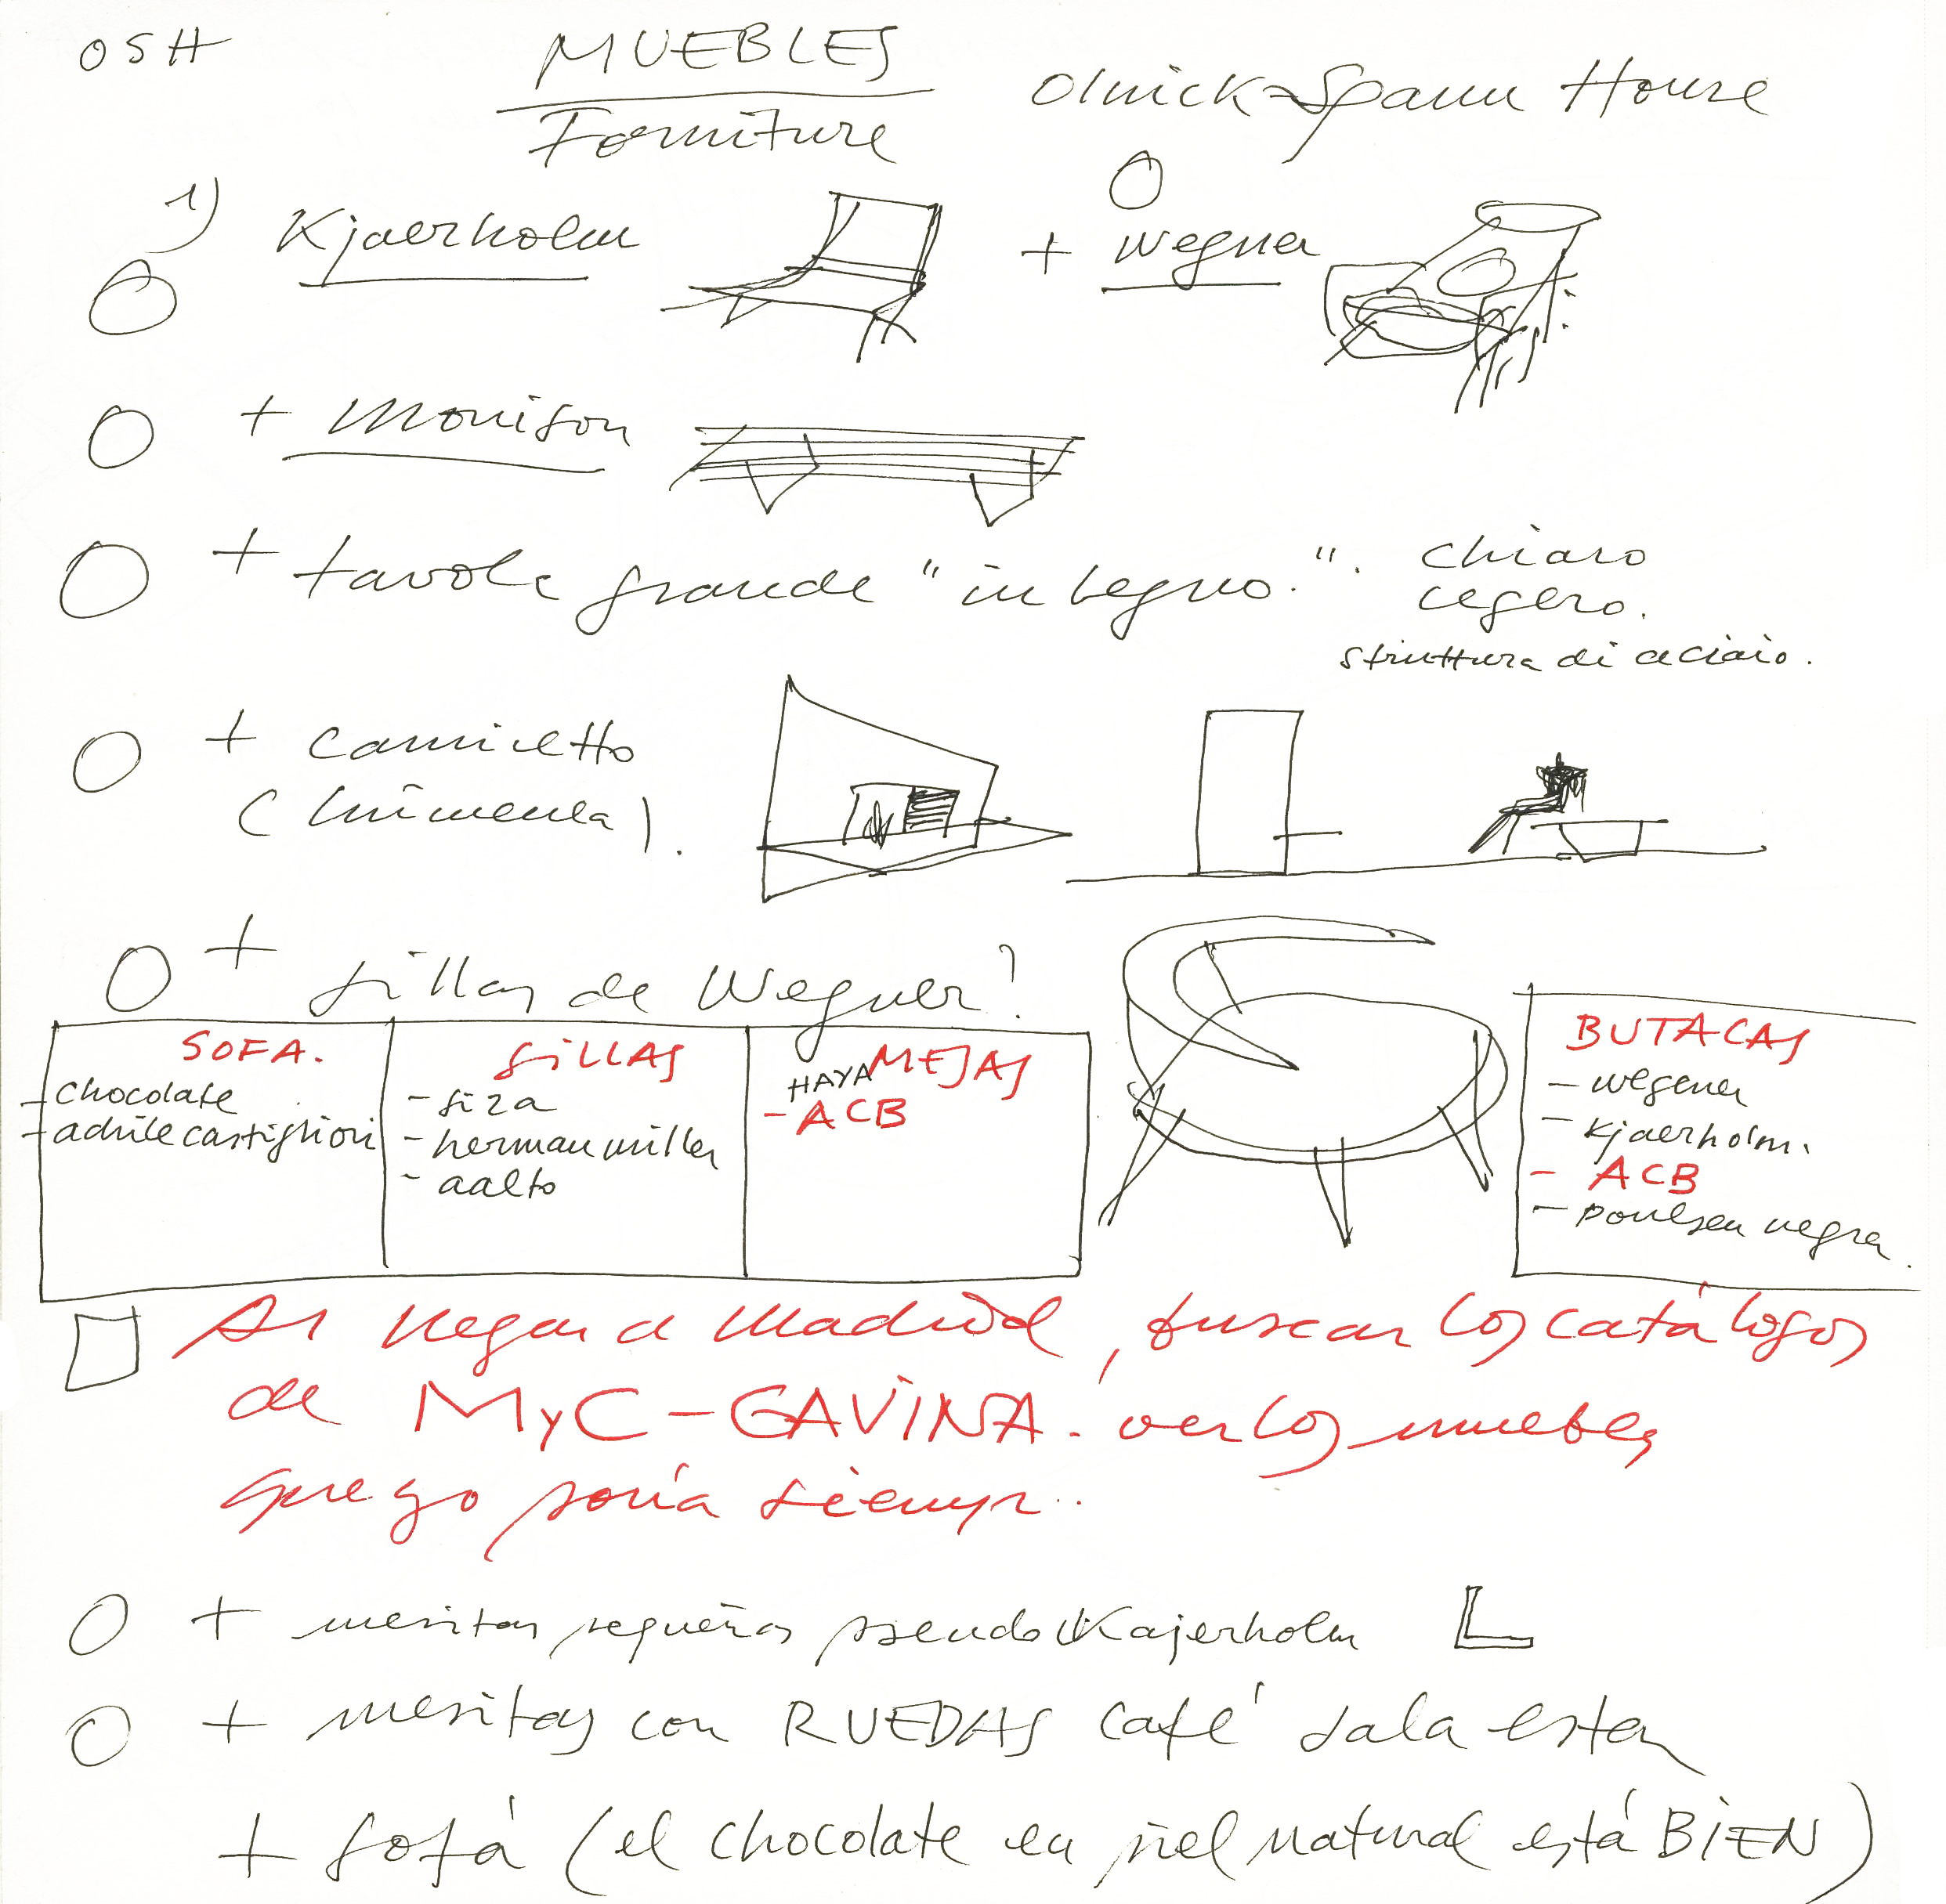 OSH
MUEBLES
Forniture
Olnick-Spanu House
1) Kjaerholm + Wegner
+ Morrison
+ tavole grande "in legno.". chiaro
legero.
struttura di aciaio.
+ caminetto
(chimenea).
+ sillas de Wegner?
SOFA.
- chocolate
- achile castiglioni
SILLAS
- siza
- herman miller
- aalto
HAYA MESAS
- ACB
BUTACAS
- wegener
- Kjaerholm.
- ACB
- poulsen negra.
Al llegar a Madrid, buscar los catálogos
de MyC-GAVINA. ver los muebles
que yo ponía siempr..
+ mesitas pequeñas pseudo Kajerholm
+ mesitas con RUEDAS café sala estar
+ sofá (el chocolate en piel natural está BIEN)